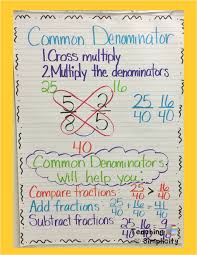 Common Denominator
1.Cross multiply
2.Multiply the denominators
25 16
5 2 25 16
8 5 40 40
40
Common Denominators
will help you:
Compare fractions 25/40 > 16/40
Add fractions 25/40 + 16/40 = 41/40
Subtract fractions 25/40 - 16/40 = 9
Teaching
Simplicity